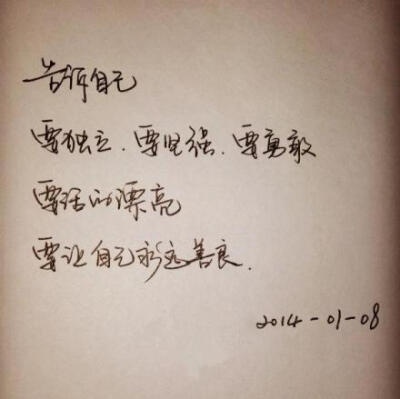 告诉自己
要独立.要坚强.要勇敢
要活的漂亮
要让自己永远善良.
2014-01-08